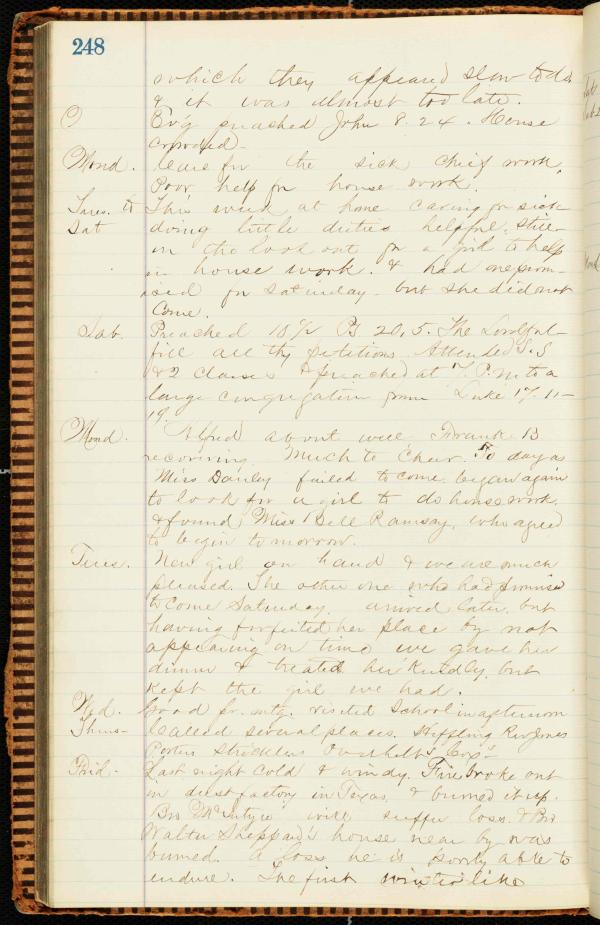 248
which they appeared slow to do
& it was almost too late.
Ev'g preached John 8.24. House
crowded-
Mond. Cares for the sick chief work.
Poor help for house work.
Tues. to This week at home caring for sick
Sat doing little duties helpful. still
on the look out for a girl to help
in house work. & had one prom-
ised for Saturday. but she did not
Come.
Sab. Preached 10½ Ps 20,5. The Lord ful-
fill all thy petitions. Attended S.S
& 2 classes & preached at 7 P.M. to a
large congregation from Luke 17. 11-
19.
Mond. Alfred about well Frank B
recovering. Much to cheer. To day as
Miss Danley failed to come. began again
to look for a girl to do house work.
& found, Miss Bell Ramsay, who agreed
to begin tomorrow.
Tues. New girl on hand & we are much
pleased. The other one who had promised
to come Saturday. arrived later. but
having forfeited her place by not
appearing on time we gave her
dinner & treated her kindly. but
kept the girl we had.
Wed. Good pr. mtg. visited School in afternoon
Thurs- Called several places. Heffling Rev Jones
Porter Stricklers Overholts
Frid. Last night cold & windy. Fire broke out
in factory in Texas, & burned it up.
Bro McIntyre will suffer loss. & Bro
Walter Sheppard's house near by was
burned. A loss he is poorly able to
endure. The first winter like